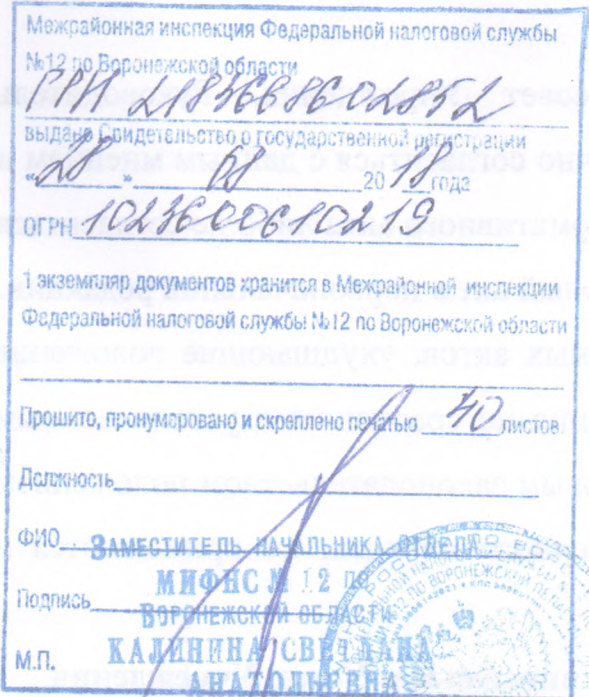 Межрайонная инспекция Федеральной налоговой службы
№12 по Воронежской области
ГРН 2183668602852
выдано Свидетельство о государственной регистрации
20 18 года
ОГРН 1023600610219
1 экземпляр документов хранится в Межрайонной инспекции
Федеральной налоговой службы №12 по Воронежской области
Прошито, пронумеровано и скреплено печатью 40 листов
Должность
ФИО ЗАМЕСТИТЕЛЬ НАЧАЛЬНИКА ОТДЕЛА
МИФНС № 12 ПО
Подпись ВОРОНЕЖСКОЙ ОБЛАСТИ
М.П. КАЛИНИНА СВЕТЛАНА
АНАТОЛЬЕВНА